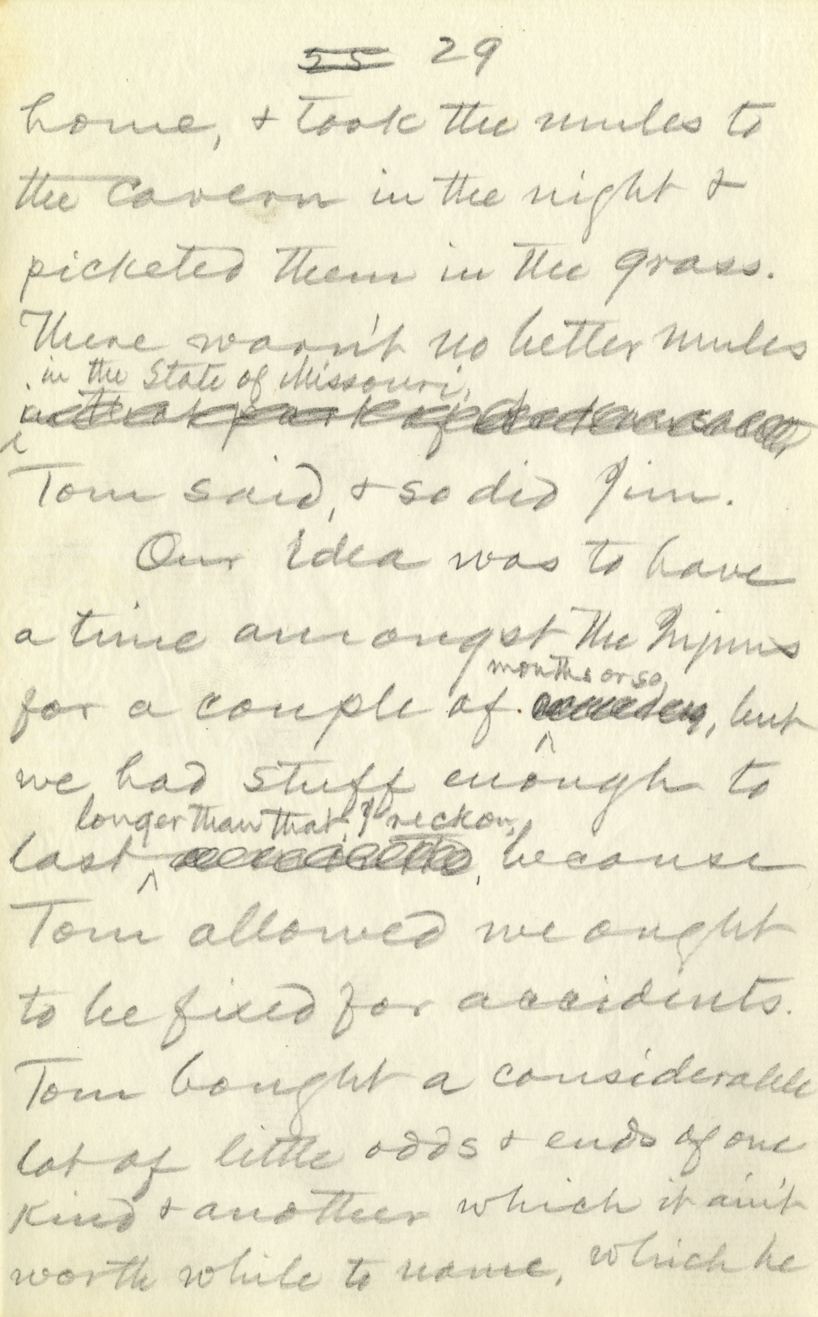 25 29
home, & took the mules to
the cavern in the night &
picketed them in the grass.
There warn't no better mules
in the State of Missouri,
Tom said, & so did Jim.
Our idea was to have
a time amongst the Injuns
months or so,
for a couple of , but
we had stuff enough to
longer than that, I reckon,
last , because
Tom allowed we ought
to be fixed for accidents.
Tom bought a considerable
lot of little odds & ends of one
kind & another which it ain't
worth while to name, which he